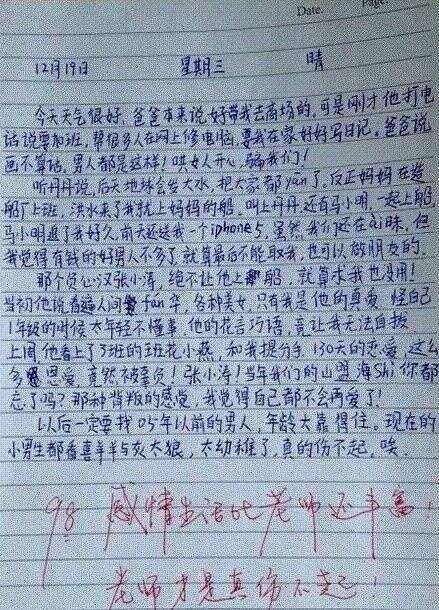 Date.
Page.
12月19日 星期三 晴
今天天气很好，爸爸本来说好带我去商场的，可是刚才他打电
话说要加班，帮很多人在网上修电脑，要我在家好好写日记。爸爸说
画不算话，男人都是这样！哄女人开心，骗我们！
听丹丹说，后天地球会发大水，把大家都yān了。反正妈妈在造
船厂上班，洪水来了我就上妈妈的船。叫上丹丹还有马小明，一起上船，
马小明追了我好久，前天还送我一个iphone5，虽然我们还在ài昧，但
我觉得有钱的好男人不多了，就算最后不能取我，也可以做朋友的。
那个负心汉张小涛，绝不让他上船，就算求我也没用！
当初他说看遍人间fan华，各种美女，只有我是他的真爱，怪自己
1年级的时候太年轻不懂事，他的花言巧语，竟让我无法自拔
上周他看上了3班的班花小燕，和我提分手，130天的恋爱，这么
多恩爱，竟然被辜负！张小涛！当年我们的山盟海shi你都
忘了吗？那种背叛的感觉，我觉得自己都不会再爱了！
以后一定要找05年以前的男人，年龄大靠得住。现在的
小男生都看喜羊羊与灰太狼，太幼稚了，真的伤不起，唉。
98 感情生活比老师还丰富！
老师才是真伤不起！